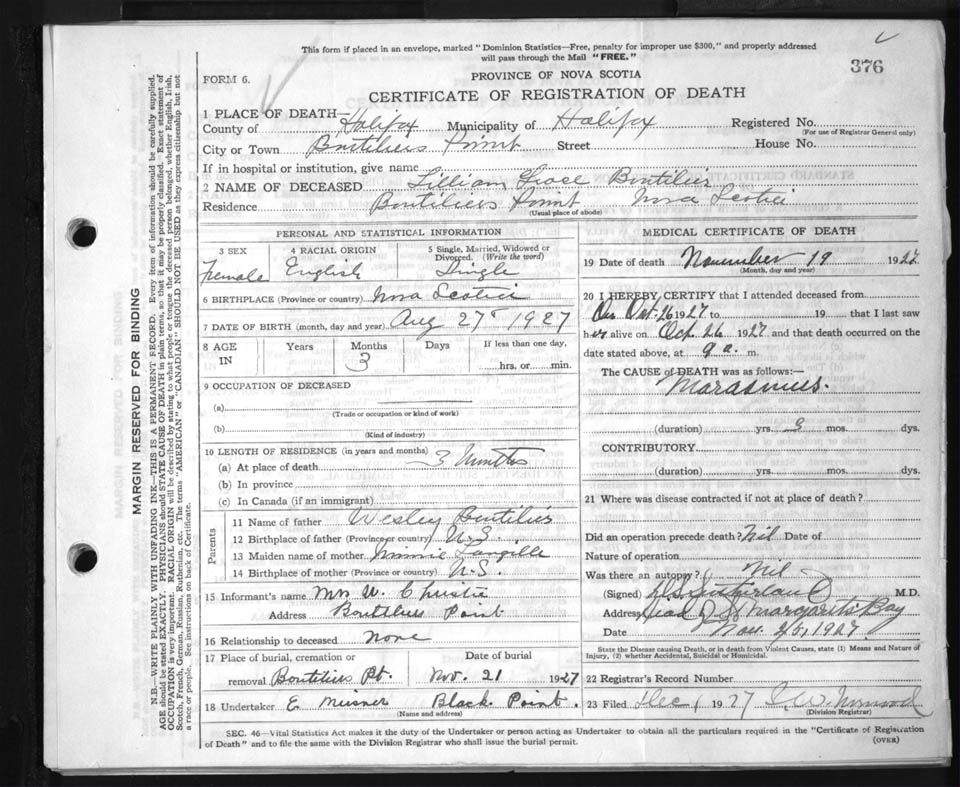 This form if placed in an envelope, marked "Dominion Statistics—Free, penalty for improper use $300," and properly addressed
will pass through the Mail "FREE."
376
FORM 6.
PROVINCE OF NOVA SCOTIA
CERTIFICATE OF REGISTRATION OF DEATH
1 PLACE OF DEATH—
County of Halifax Municipality of Halifax Registered No.
(For use of Registrar General only)
City or Town Boutiliers Point Street House No.
If in hospital or institution, give name
2 NAME OF DECEASED Lillian Grace Boutilier
Residence Boutiliers Point Nova Scotia
(Usual place of abode)
PERSONAL AND STATISTICAL INFORMATION
3 SEX 4 RACIAL ORIGIN 5 Single, Married, Widowed or
Divorced. (Write the word)
Female English Single
6 BIRTHPLACE (Province or country) Nova Scotia
7 DATE OF BIRTH (month, day and year) Aug 27 1927
8 AGE Years Months Days If less than one day,
IN 3 hrs. or min.
9 OCCUPATION OF DECEASED
(a)
(Trade or occupation or kind of work)
(b)
(Kind of industry)
10 LENGTH OF RESIDENCE (in years and months)
(a) At place of death 3 Months
(b) In province
(c) In Canada (if an immigrant)
Parents
11 Name of father Wesley Boutilier
12 Birthplace of father (Province or country) N.S.
13 Maiden name of mother Minnie Langille
14 Birthplace of mother (Province or country) N.S.
15 Informant's name Mrs W. Christie
Address Boutiliers Point
16 Relationship to deceased None
17 Place of burial, cremation or Date of burial
removal Boutiliers Pt. Nov. 21 1927
18 Undertaker E Meisner Black Point.
(Name and address)
MEDICAL CERTIFICATE OF DEATH
19 Date of death November 19 1927
(Month, day and year)
20 I HEREBY CERTIFY that I attended deceased from
On Oct. 26 1927 to 19 that I last saw
her alive on Oct 26 1927 and that death occurred on the
date stated above, at 9 a. m.
The CAUSE of DEATH was as follows:—
Marasmus.
(duration) yrs. 3 mos. dys.
CONTRIBUTORY
(duration) yrs. mos. dys.
21 Where was disease contracted if not at place of death?
Did an operation precede death? Nil Date of
Nature of operation
Was there an autopsy? Nil
(Signed) M.D.
Address Head St Margarets Bay
Date Nov. 1927
State the Disease causing Death, or in death from Violent Causes, state (1) Means and Nature of
Injury, (2) whether Accidental, Suicidal or Homicidal.
22 Registrar's Record Number
23 Filed Dec 1 1927
(Division Registrar)
SEC. 46—Vital Statistics Act makes it the duty of the Undertaker or person acting as Undertaker to obtain all the particulars required in the "Certificate of Registration
of Death" and to file the same with the Division Registrar who shall issue the burial permit.
(OVER)
MARGIN RESERVED FOR BINDING
N.B.—WRITE PLAINLY WITH UNFADING INK—THIS IS A PERMANENT RECORD. Every item of information should be carefully supplied.
AGE should be stated EXACTLY. PHYSICIANS should STATE CAUSE OF DEATH in plain terms, so that it may be properly classified. Exact statement of
OCCUPATION is very important. RACIAL ORIGIN will be described by stating to what people or tongue the deceased person belonged, whether English, Irish,
Scotch, French, German, Russian, Ruthenian, etc. The terms "AMERICAN" or "CANADIAN" SHOULD NOT BE USED as they express citizenship but not
a race or people. See instructions on back of Certificate.